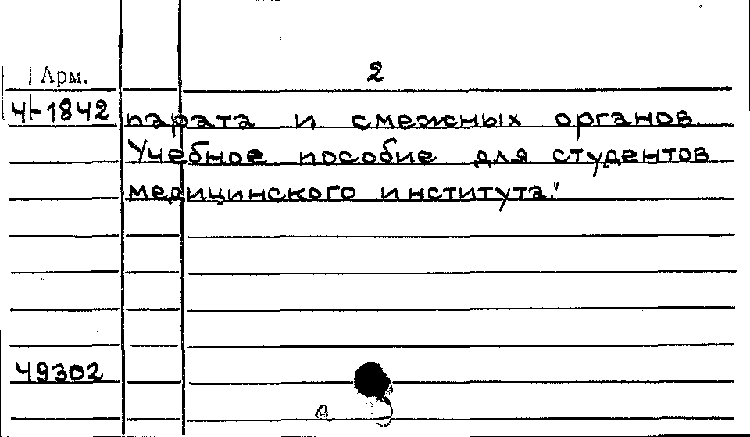 Арм. 2
Ч-1842 парата и смежных органов.
Учебное пособие для студентов
медицинского института."
49302
а